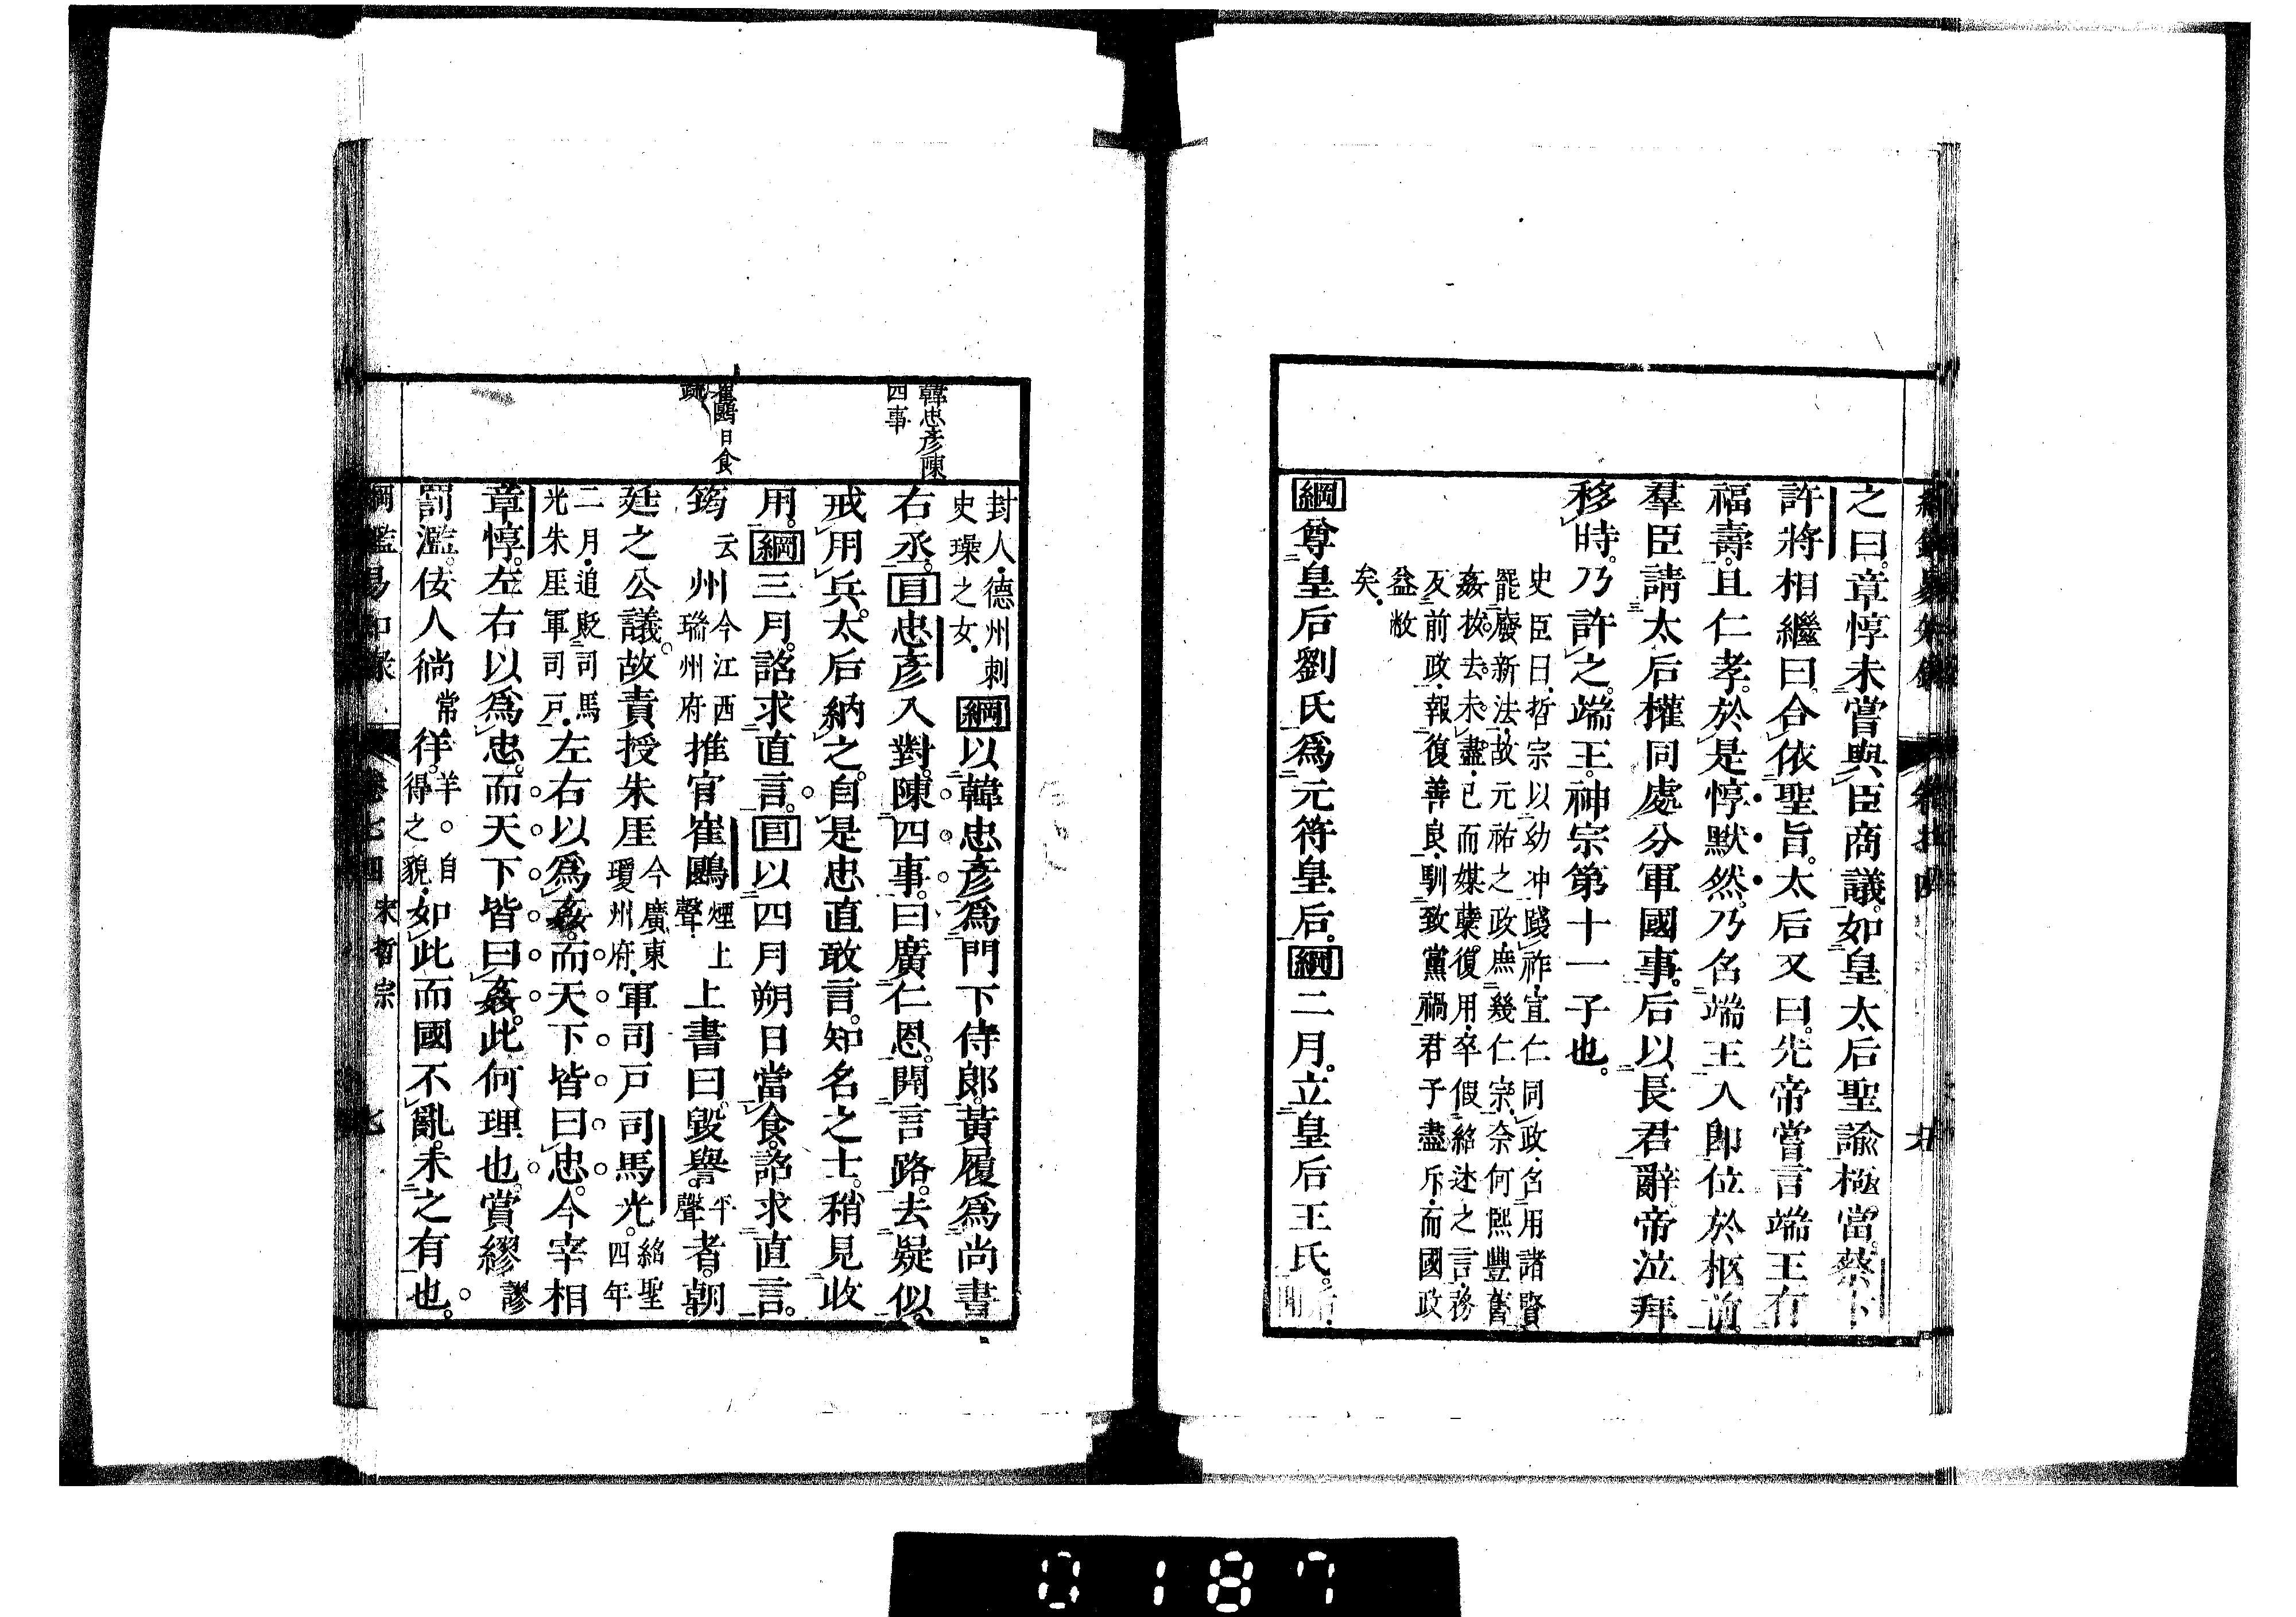 之曰。章惇未嘗與臣商議。如皇太后聖諭極當。蔡卞
許將相繼曰。合依聖旨。太后又曰。先帝嘗言端王有
福壽。且仁孝。於是惇默然。乃名端王入卽位於柩前。
羣臣請太后權同處分軍國事。后以長君辭。帝泣拜
移時。乃許之。端王。神宗第十一子也。
史臣曰。哲宗以幼冲踐祚。宣仁同政。名用諸賢
罷廢新法。故元祐之政。庶幾仁宗。奈何熙豐舊
姦拔去未盡。已而媒蘖復用。卒假紹述之言。務
反前政。報復善良。馴致黨禍。君子盡斥。而國政
益敝
矣。
綱尊皇后劉氏爲元符皇后。綱二月。立皇后王氏。開
韓忠彥陳
四事
崔鶠日食
疏
封人。德州刺
史璪之女。
綱以韓忠彥爲門下侍郎。黃履爲尚書
右丞。目忠彥入對。陳四事。曰廣仁恩。開言路。去疑似。
戒用兵。太后納之。自是忠直敢言。知名之士。稍見收
用。綱三月。詔求直言。目以四月朔日當食。詔求直言。
筠云州今江西瑞州府推官崔鶠煙上聲。上書曰。毀譽平聲者。朝
廷之公議。故責授朱厓今廣東瓊州府。軍司戸司馬光。紹聖四年
二月。追貶司馬光朱厓軍司戸。左右以爲姦。而天下皆曰忠。今宰相
章惇。左右以爲忠。而天下皆曰姦。此何理也。賞繆謬
罰濫。佞人徜常徉。羊。自得之貌。如此而國不亂。未之有也。
綱鑑易知録 卷七四 宋哲宗 七
0187